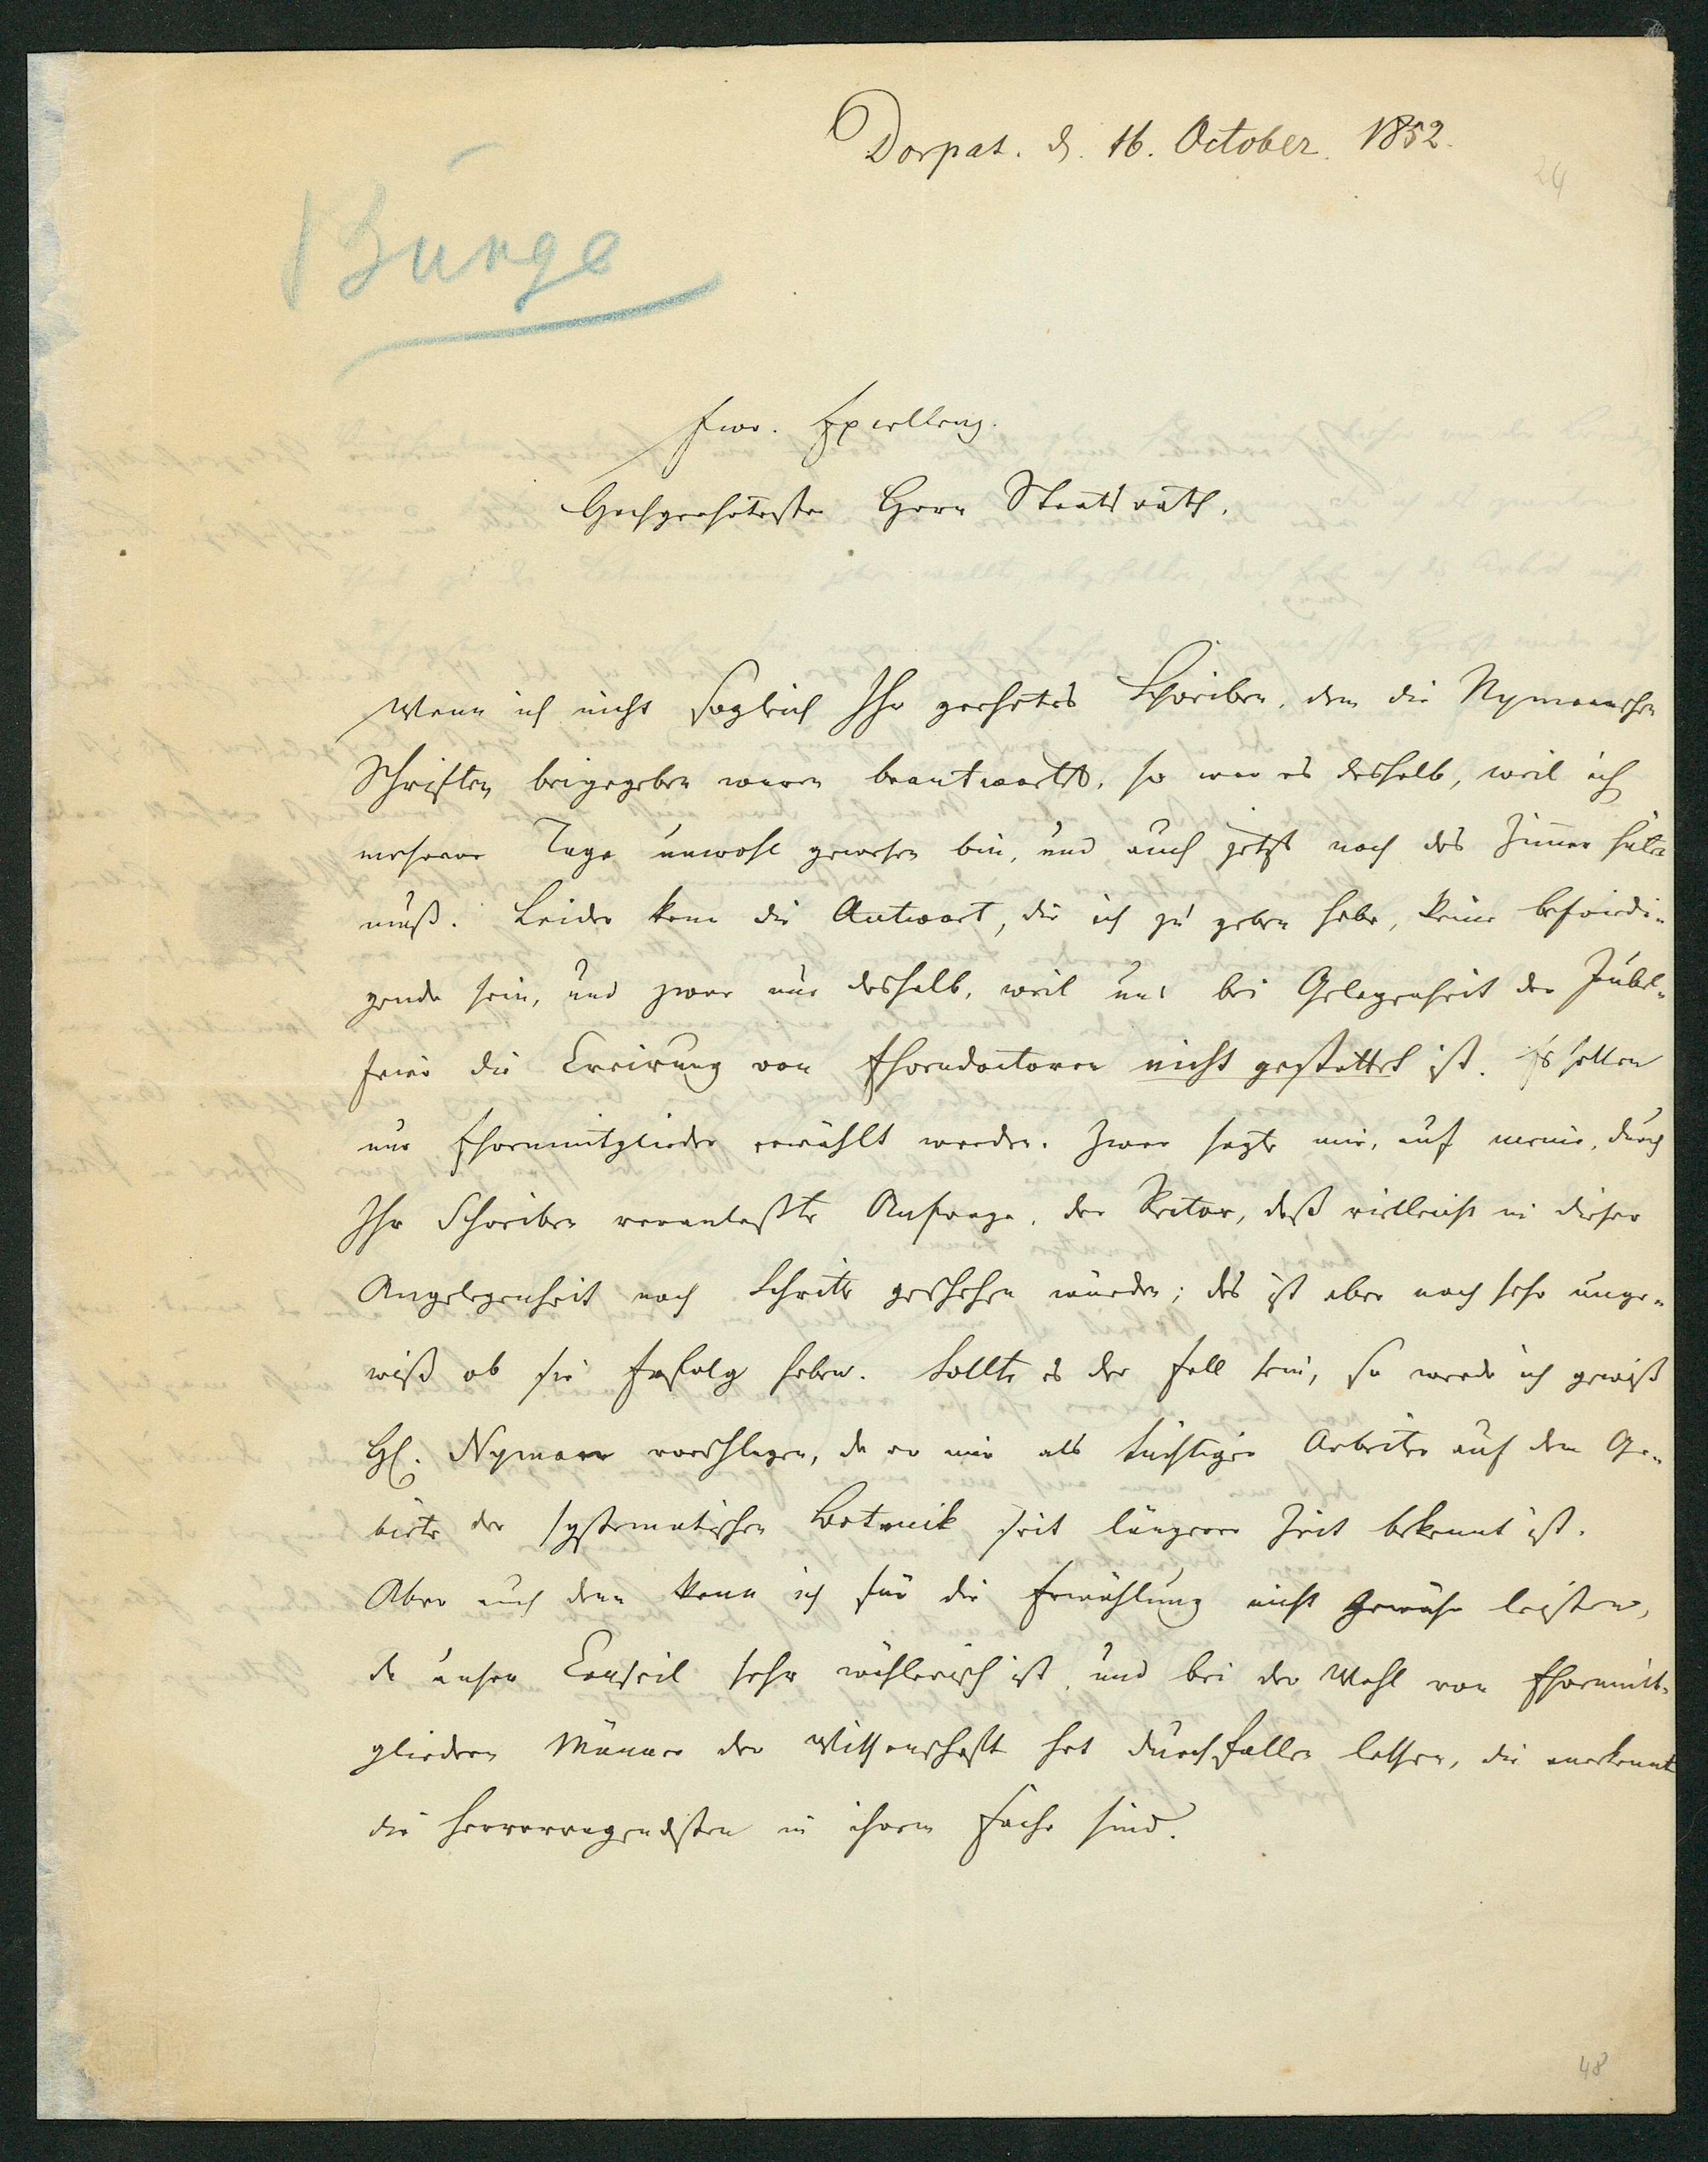 Dorpat. d. 16. October. 1852.
24
Bunge
Ew. Excellenz.
Hochgeehrtester Herr Staatsrath.
Wenn ich nicht sogleich Ihr geehrtes Schreiben, dem die Nymanschen
Schriften beigegeben waren beantwortete, so war es deshalb, weil ich
mehrere Tage unwohl gewesen bin, und auch jetzt noch das Zimer hüten
muß. Leider kann die Antwort, die ich zu geben habe, keine befriedi-
gende sein, und zwar nur deshalb, weil uns bei Gelegenheit der Jubel-
feier die Creirung von Ehrendoctoren nicht gestattet ist. Es sollen
nur Ehrenmitglieder erwählt werden. Zwar sagte mir, auf meine, durch
Ihr Schreiben veranlaßte Anfrage, der Rector, daß vielleicht in dieser
Angelegenheit noch Schritte geschehen würden; das ist aber noch sehr unge-
wiß ob sie Erfolg haben. Sollte es der Fall sein, so werde ich gewiß
H. Nyman vorschlagen, da er mir als tüchtiger Arbeiter auf dem Ge-
biete der systematischen Botanik seit längerer Zeit bekannt ist.
Aber auch dann kann ich für die Erwählung nicht Gewähr leisten,
da unser Conseil sehr wählerisch ist, und bei der Wahl von Ehrenmit-
gliedern Männer der Wissenschaft hat durchfallen lassen, die anerkannt
die hervorragendsten in ihrem Fache sind.
48